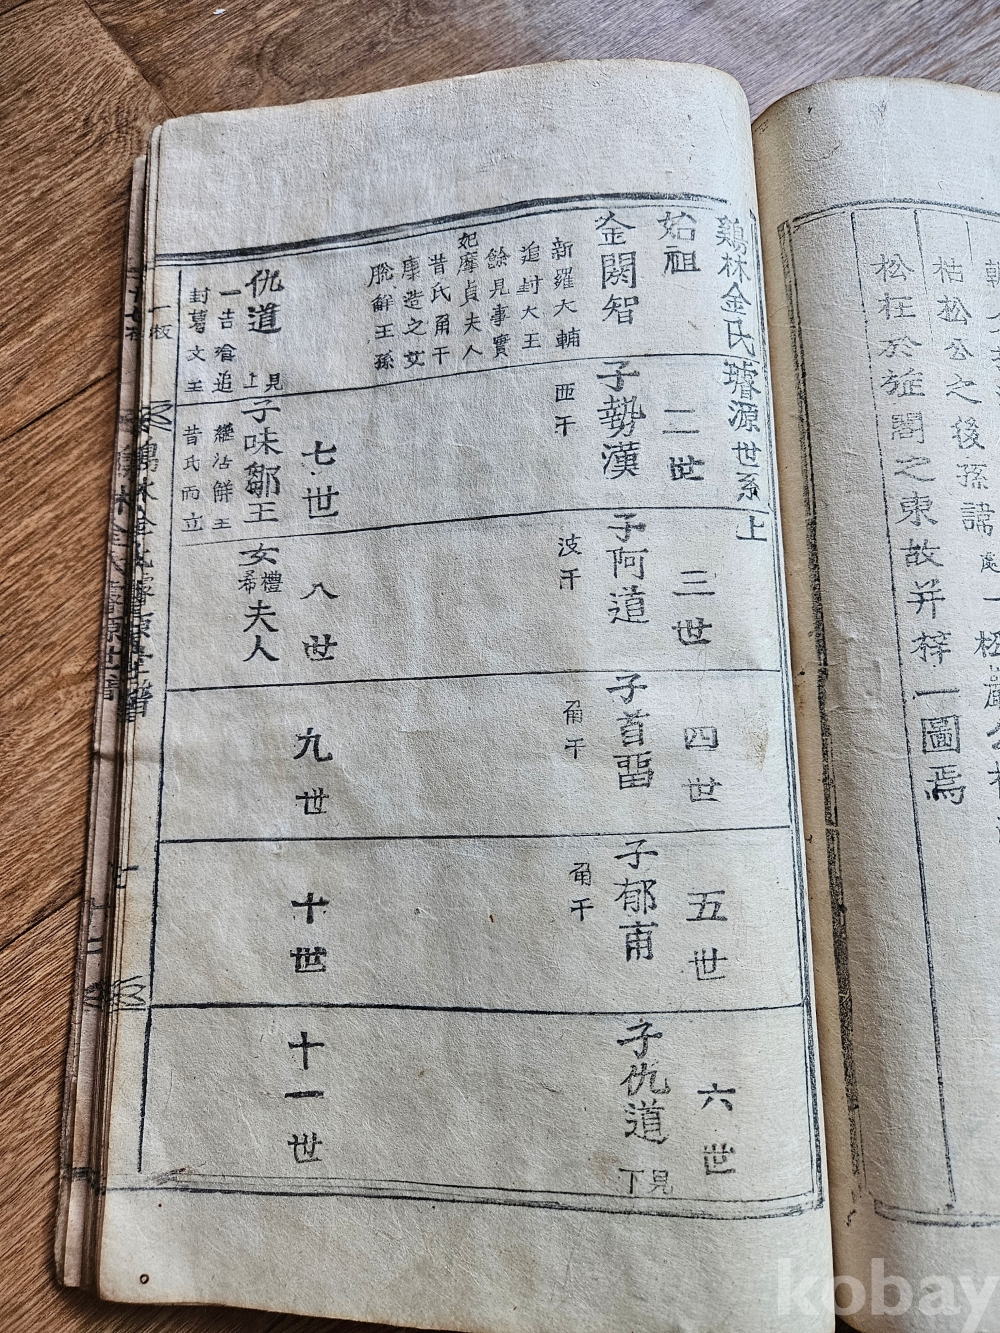 鷄林金氏璿源世系上
始祖
二世
三世
四世
五世
六世
金閼智
子勢漢
子阿道
子首畱
子郁甫
子仇道
見下
新羅大輔
追封大王
餘見事實
妃摩貞夫人
昔氏角干
康造之女
脫解王孫
波干
角干
角干
七世
八世
九世
十世
十一世
仇道
見上
一吉飡追
封葛文王
子味鄒王
繼沾解王
昔氏而立
女
禮希
夫人
一板
鷄林金氏璿源世譜
枯松公之後孫諱
松枉於
閣之東故并梓一圖焉
kobay